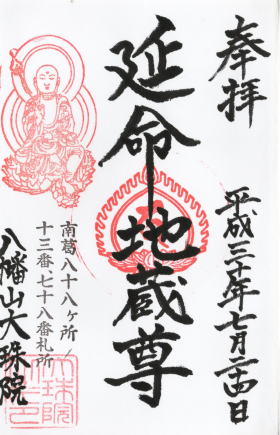 奉拝
平成三十年七月二十四日
延命地蔵尊
南葛八十八ヶ所
十三番七十八番札所
八幡山大珠院